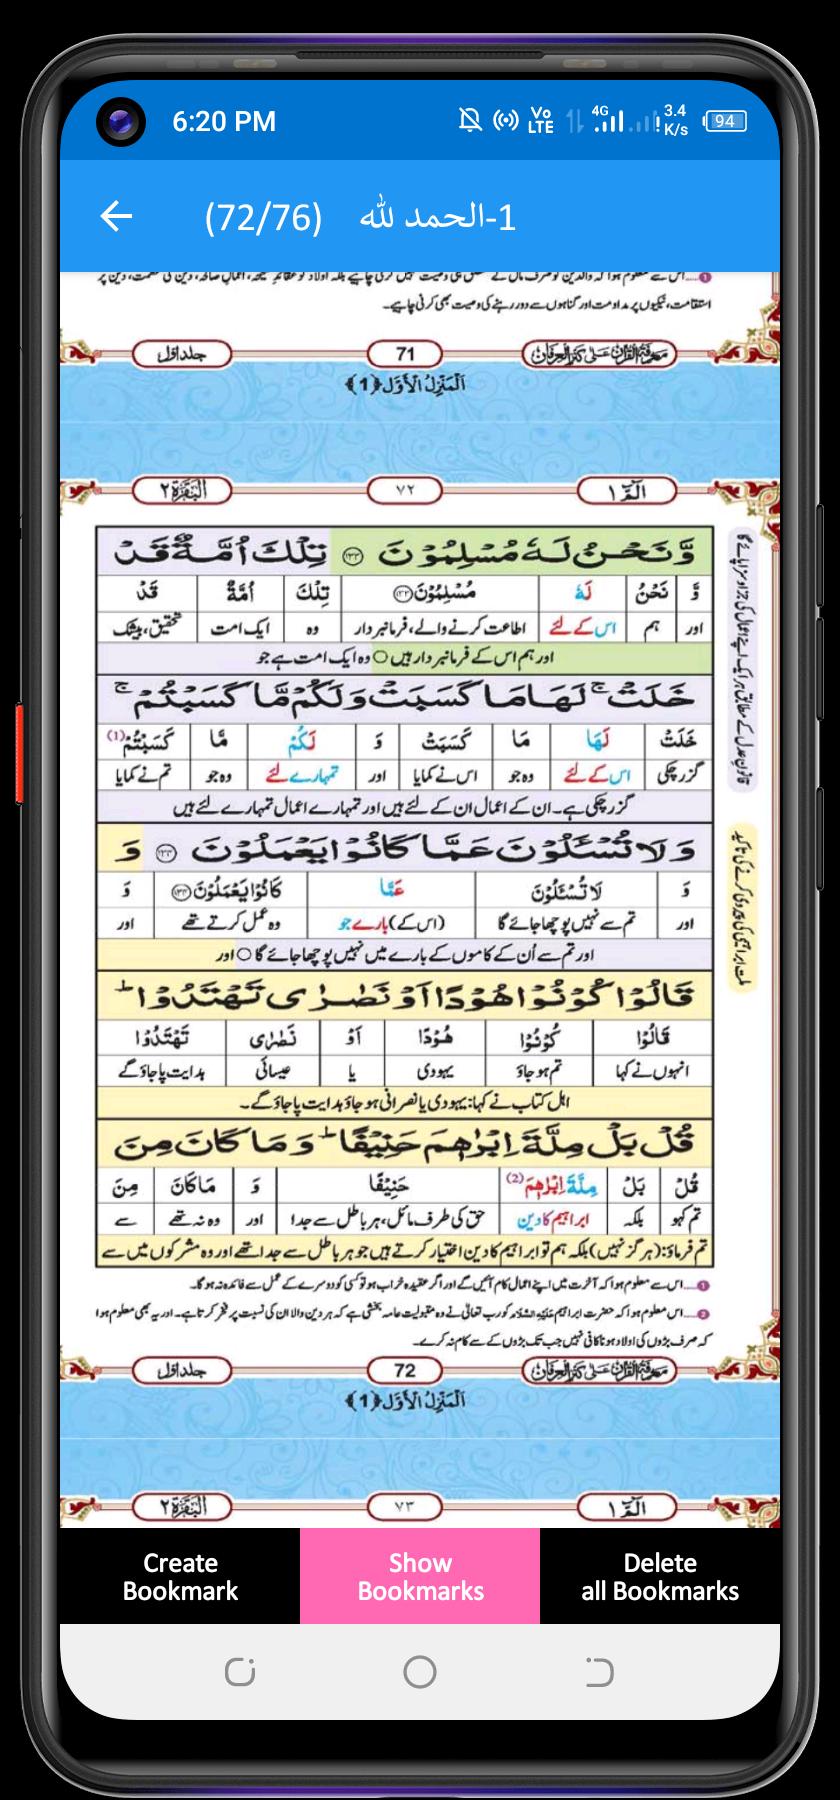 6:20 PM
Vo LTE 4G 3.4 K/s 94
(72/76) 1-الحمد لله
استقامت، نیکیوں پر مداومت اور گناہوں سے دور رہنے کی وصیت بھی کرنی چاہیے۔
جلد اول 71
اَلْمَنْزِلُ الْاَوَّل ﴿1﴾
الٓمّٓ ١ ٧٢ البقرة ٢
وَّ نَحْنُ لَهٗ مُسْلِمُوْنَ ۱۳۳ تِلْكَ اُمَّةٌ قَدْ
وَّ نَحْنُ لَهٗ مُسْلِمُوْنَ ۱۳۳ تِلْكَ اُمَّةٌ قَدْ
اور ہم اس کے لئے اطاعت کرنے والے، فرمانبردار وہ ایک امت تحقیق، بیشک
اور ہم اس کے فرمانبردار ہیں ○ وہ ایک امت ہے جو
خَلَتْ ۚ لَهَا مَا كَسَبَتْ وَ لَكُمْ مَّا كَسَبْتُمْ ۚ
خَلَتْ لَهَا مَا كَسَبَتْ وَ لَكُمْ مَّا كَسَبْتُمْ (1)
گزر چکی اس کے لئے وہ جو اس نے کمایا اور تمہارے لئے وہ جو تم نے کمایا
گزر چکی ہے۔ ان کے اعمال ان کے لئے ہیں اور تمہارے اعمال تمہارے لئے ہیں
وَ لَا تُسْــٴَـلُوْنَ عَمَّا كَانُوْا يَعْمَلُوْنَ ۱۳۴ وَ
وَ لَا تُسْــٴَـلُوْنَ عَمَّا كَانُوْا يَعْمَلُوْنَ ۱۳۴ وَ
اور تم سے نہیں پوچھا جائے گا (اس کے) بارے جو وہ عمل کرتے تھے اور
اور تم سے اُن کے کاموں کے بارے میں نہیں پوچھا جائے گا ○ اور
قَالُوْا كُوْنُوْا هُوْدًا اَوْ نَصٰرٰى تَهْتَدُوْا ؕ
قَالُوْا كُوْنُوْا هُوْدًا اَوْ نَصٰرٰى تَهْتَدُوْا
انہوں نے کہا تم ہو جاؤ یہودی یا عیسائی ہدایت پا جاؤ گے
اہل کتاب نے کہا: یہودی یا نصرانی ہو جاؤ ہدایت پا جاؤ گے۔
قُلْ بَلْ مِلَّةَ اِبْرٰهٖمَ حَنِيْفًا ؕ وَ مَا كَانَ مِنَ
قُلْ بَلْ مِلَّةَ اِبْرٰهٖمَ (2) حَنِيْفًا وَ مَا كَانَ مِنَ
تم کہو بلکہ ابراہیم کا دین حق کی طرف مائل، ہر باطل سے جدا اور وہ نہ تھے سے
تم فرماؤ: (ہرگز نہیں) بلکہ ہم تو ابراہیم کا دین اختیار کرتے ہیں جو ہر باطل سے جدا تھے اور وہ مشرکوں میں سے
قانونِ عدل کے مطابق ہر ایک اپنے اعمال کی جزا و سزا پائے گا
ملت ابراہیمی کی پیروی کرنے کی تاکید
1۔۔۔۔ اس سے معلوم ہوا کہ آخرت میں اپنے اعمال کام آئیں گے اور اگر عقیدہ خراب ہو تو کسی کو دوسرے کے عمل سے فائدہ نہ ہوگا۔
2۔۔۔۔ اس معلوم ہوا کہ حضرت ابراہیم عَلَيْهِ السَّلَام کو رب تعالیٰ نے وہ مقبولیت عامہ بخشی ہے کہ ہر دین والا ان کی نسبت پر فخر کرتا ہے۔ اور یہ بھی معلوم ہوا
کہ صرف بڑوں کی اولاد ہونا کافی نہیں جب تک بڑوں کے سے کام نہ کرے۔
جلد اول 72
اَلْمَنْزِلُ الْاَوَّل ﴿1﴾
الٓمّٓ ١ ٧٣ البقرة ٢
Create Bookmark
Show Bookmarks
Delete all Bookmarks